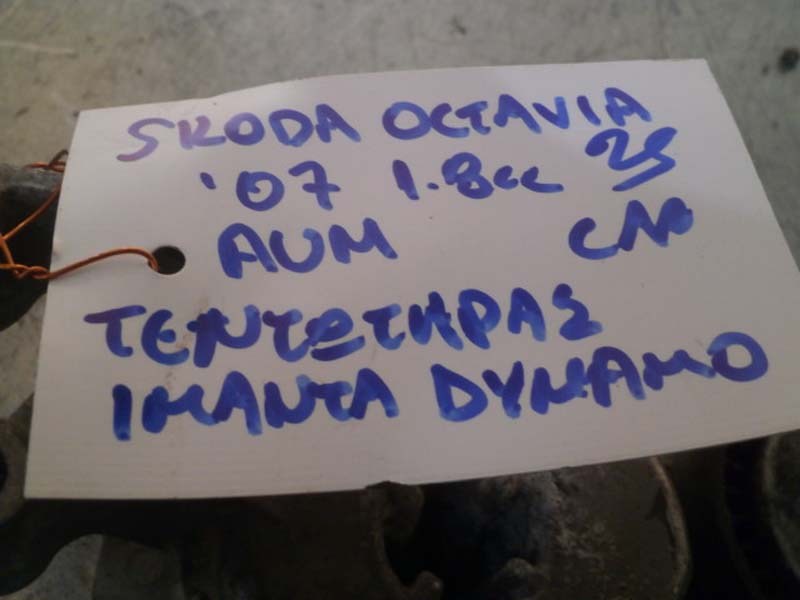 SKODA OCTAVIA
'07 1.8cc 25
AUM
ΤΕΝΤΩΤΗΡΑΣ
ΙΜΑΝΤΑ DYNAMO